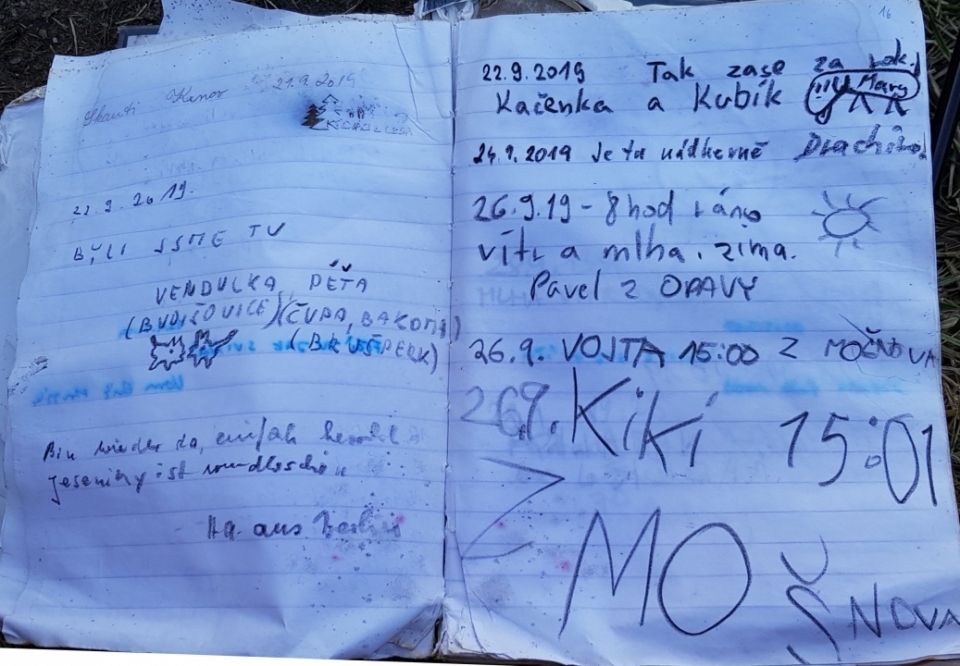 21.9.2019
22.9.2019.
BYLI JSME TU
VENDULKA, PÉŤA
(BUDIŠOVICE)(ČUPA, BAKOMA)
(BRUŠPERK)
Bin wieder da, einfah
Jeseniky ist wundeschön
aus Berlin
16
22.9.2019 Tak zase za rok.
Kačenka a Kubík Mary
24.9.2019 Je tu nádherně
26.9.19 - 8 hod ráno
vítr a mlha. zima.
Pavel z OPAVY
26.9. VOJTA 15:00 Z MOŠNOVA
26.9. Kiki 15:01
Z
MOŠNOVA